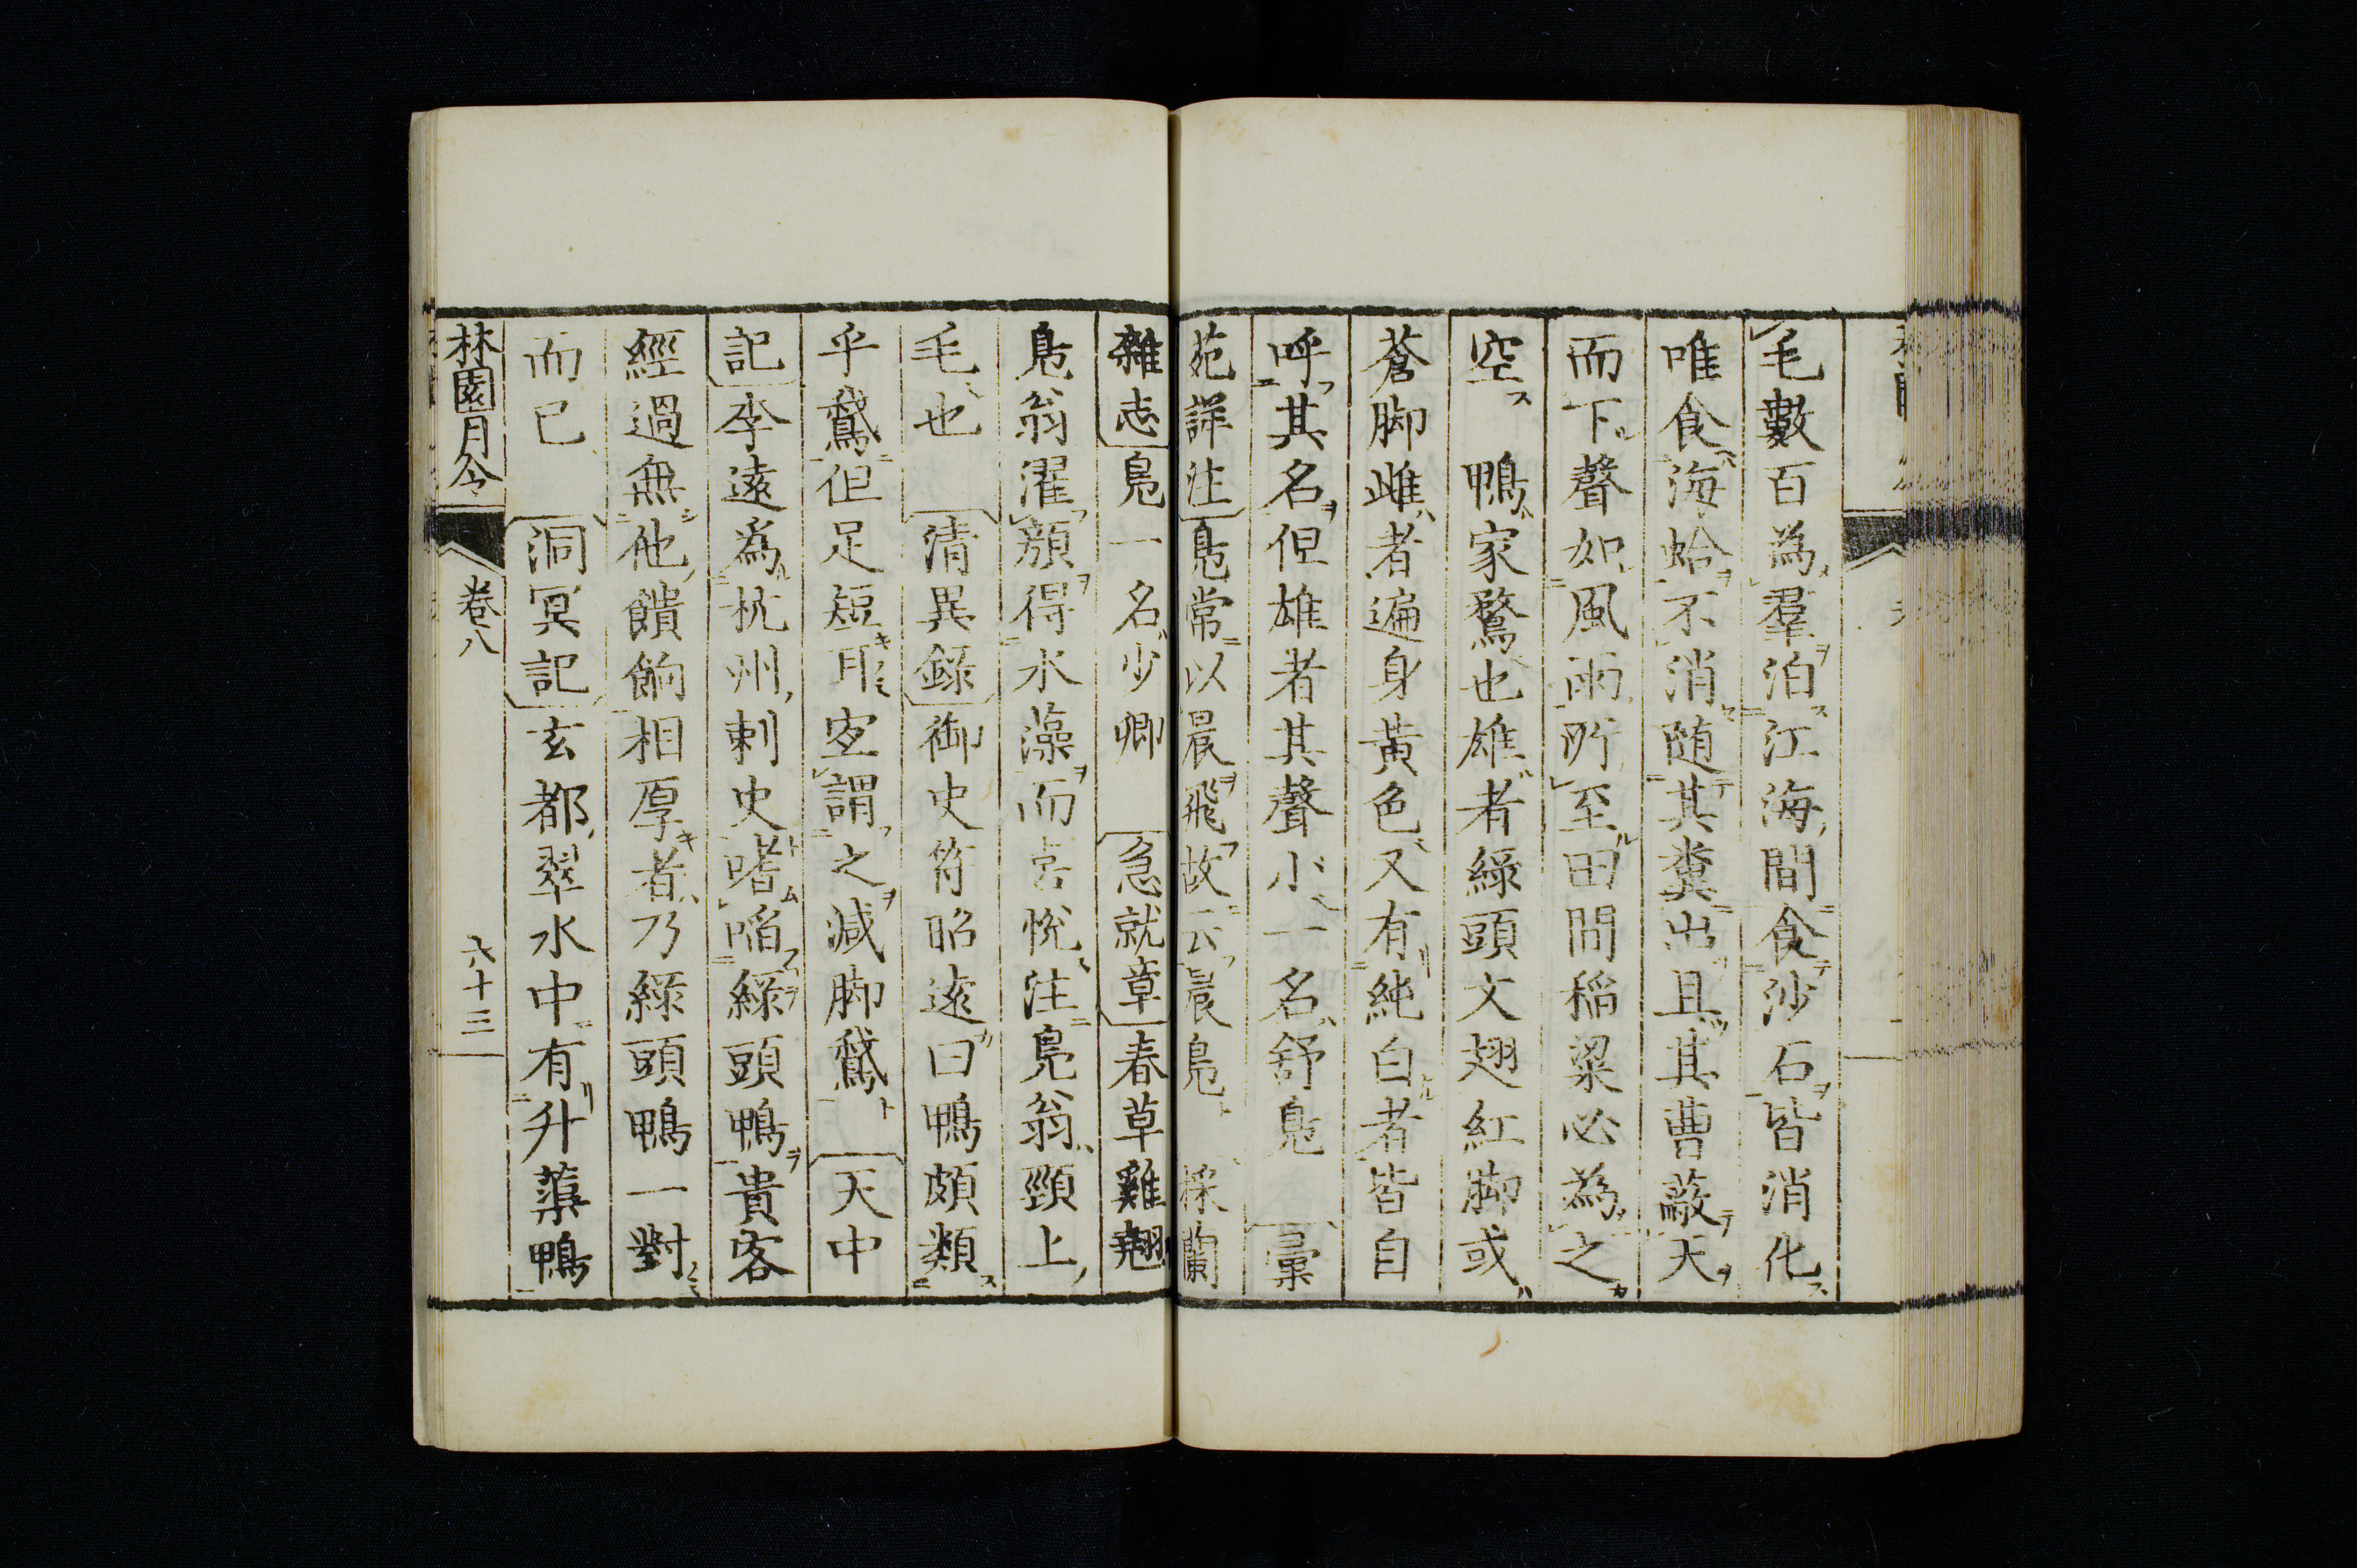 毛數百為羣泊江海間食沙石皆消化
唯食海蛤不消隨其糞出且其曹蔽天
而下聲如風雨所至田間稲粱必為之
空 鴨家鶩也雄者綠頭文翅紅脚或
蒼脚雌者遍身黃色又有純白者皆自
呼其名但雄者其聲小一名舒鳬 彙
苑詳注鳬常以晨飛故云晨鳬 採蘭
雜志鳬一名少卿 急就章春草雞翹
鳬翁濯顏得水藻而喜悅注鳬翁頸上
毛也 清異錄御史符昭遠曰鴨頗類
乎鵞但足短耳宜謂之減脚鵞 天中
記李遠為杭州刺史嗜啗綠頭鴨貴客
經過無他饋餉相厚者乃綠頭鴨一對
而已 洞冥記玄都翠水中有升蕖鴨
林園月令 卷八 六十三